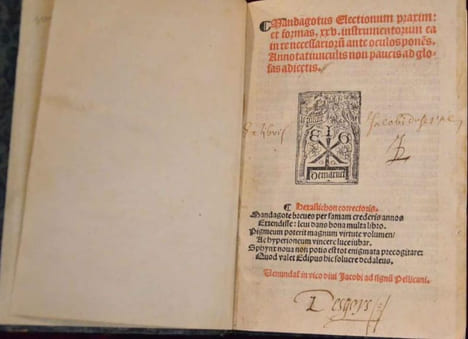 ¶Mandagotus Electionum praxim:
et formas .xxv. instrumentorum ea
in re necessariorū ante oculos ponēs.
Annotatiunculis non paucis ad glo
sas adiectis.
Ex libris Jacobi
E I G
Demarnef
¶ Hexastichon correctoris.
Mandagote breues per famam crederis annos
Extendisse: leui dans bona multa libro.
Pigmeum poterit magnum virtute volumen/
Ac hyperioneum vincere luce iubar.
Sphynx noua non potis est tot enigmata precogitare:
Quod valet Edipus hic soluere dedaleus.
Uenundat̃ in vico diui Jacobi ad signū Pellicani.